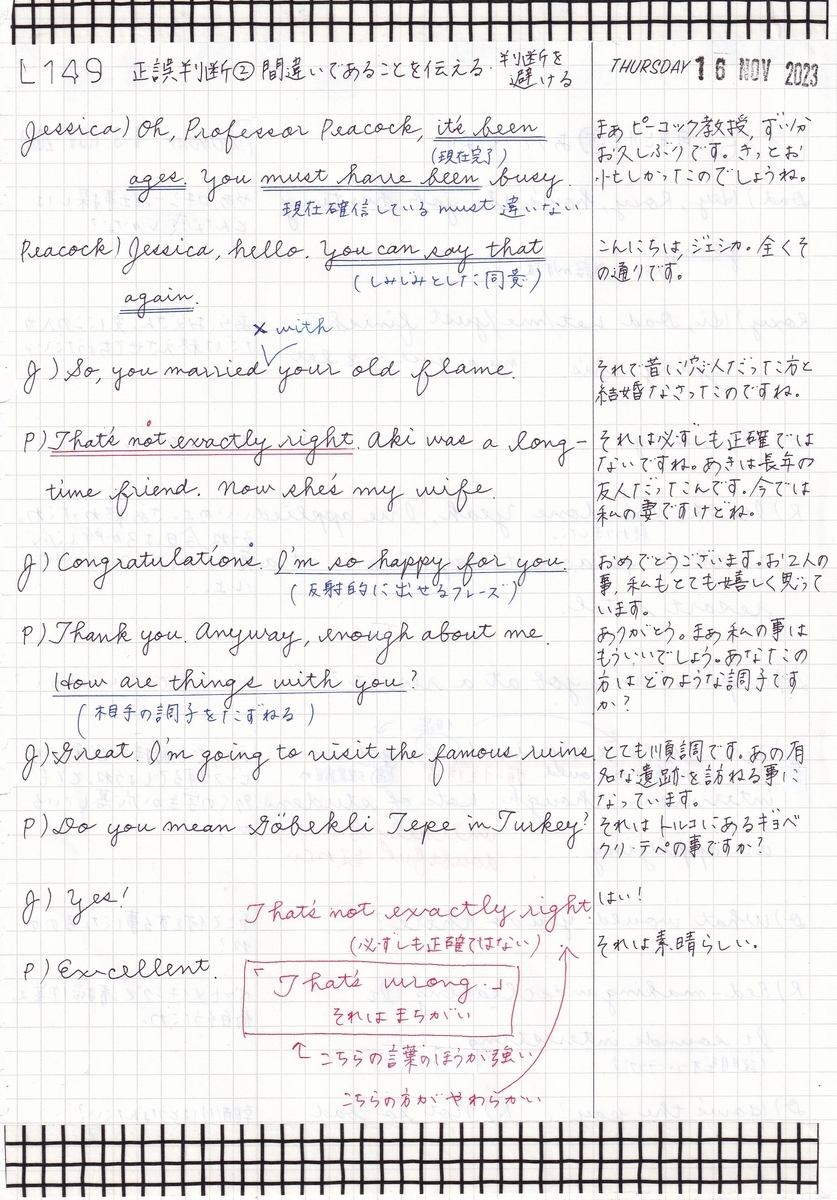 L149 正誤判断② 間違いであることを伝える・判断を避ける
THURSDAY 16 NOV 2023
Jessica) Oh, Professor Peacock, it's been
(現在完了)
ages. You must have been busy.
現在確信している must 違いない
まあ ピーコック教授, ずいぶん
お久しぶりです。きっとお
忙しかったのでしょうね。
Peacock) Jessica, hello. You can say that
(しみじみとした同意)
again.
こんにちは, ジェシカ。全くそ
の通りです。
× with
J) So, you married your old flame.
それで昔に恋人だった方と
結婚なさったのですね。
P) That's not exactly right. Aki was a long-
time friend. Now she's my wife.
それは必ずしも正確では
ないですね。あきは長年の
友人だったんです。今では
私の妻ですけどね。
J) Congratulations. I'm so happy for you.
(反射的に出せるフレーズ)
おめでとうございます。お2人の
事, 私もとても嬉しく思って
います。
P) Thank you. Anyway, enough about me.
How are things with you?
(相手の調子をたずねる)
ありがとう。まあ私の事は
もういいでしょう。あなたの
方はどのような調子です
か?
J) Great. I'm going to visit the famous ruins.
とても順調です。あの有
名な遺跡を訪ねる事に
なっています。
P) Do you mean Göbekli Tepe in Turkey?
それはトルコにあるギョベ
クリ・テペの事ですか?
J) Yes!
はい!
P) Excellent.
それは素晴らしい。
That's not exactly right.
(必ずしも正確ではない)
「That's wrong.」
それはまちがい
↑こちらの言葉のほうが強い
こちらの方がやわらかい